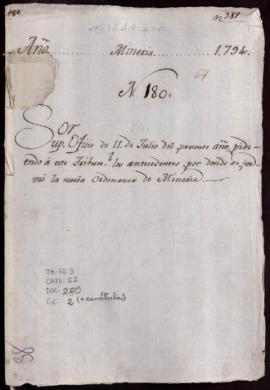 n 381
Año. Mineria 1.794.
64
N. 180.
Sor
Sup. Oficio de 11. de Julio del presente año, pidi-
endo á este Tribun.l los antecedentes por donde se for-
mó la nueva Ordenanza de Mineria.
TM-AD 3
CAJA: 22
DOC: 280
Fol: 2 (+ carátulas)